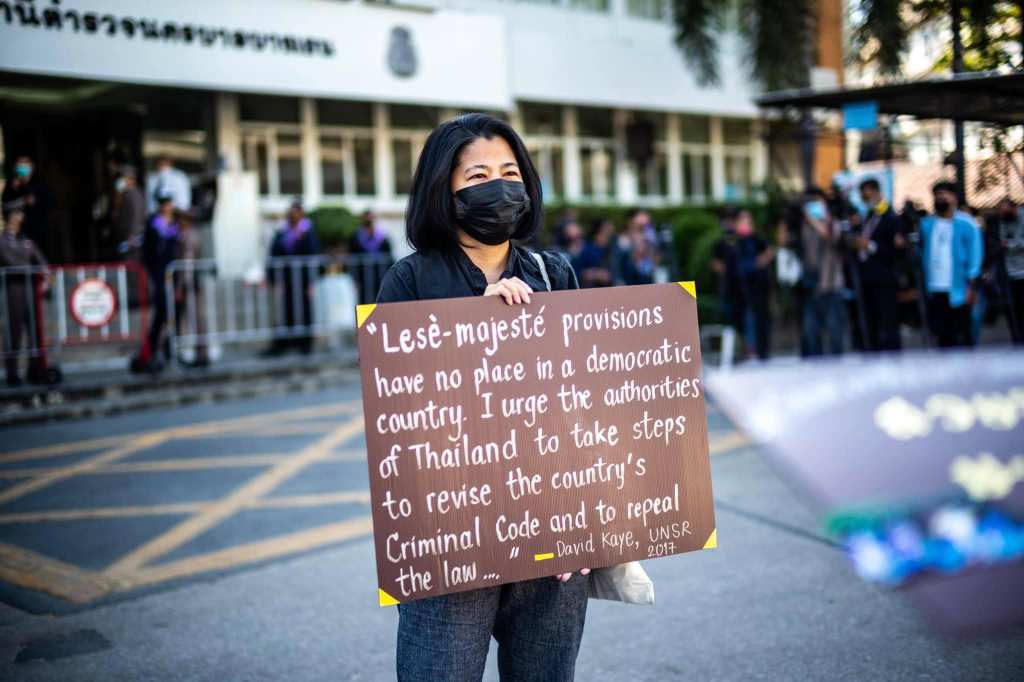 "Lesè-majesté provisions
have no place in a democratic
country. I urge the authorities
of Thailand to take steps
to revise the country's
Criminal Code and to repeal
the law ... "
– David Kaye, UNSR
2017